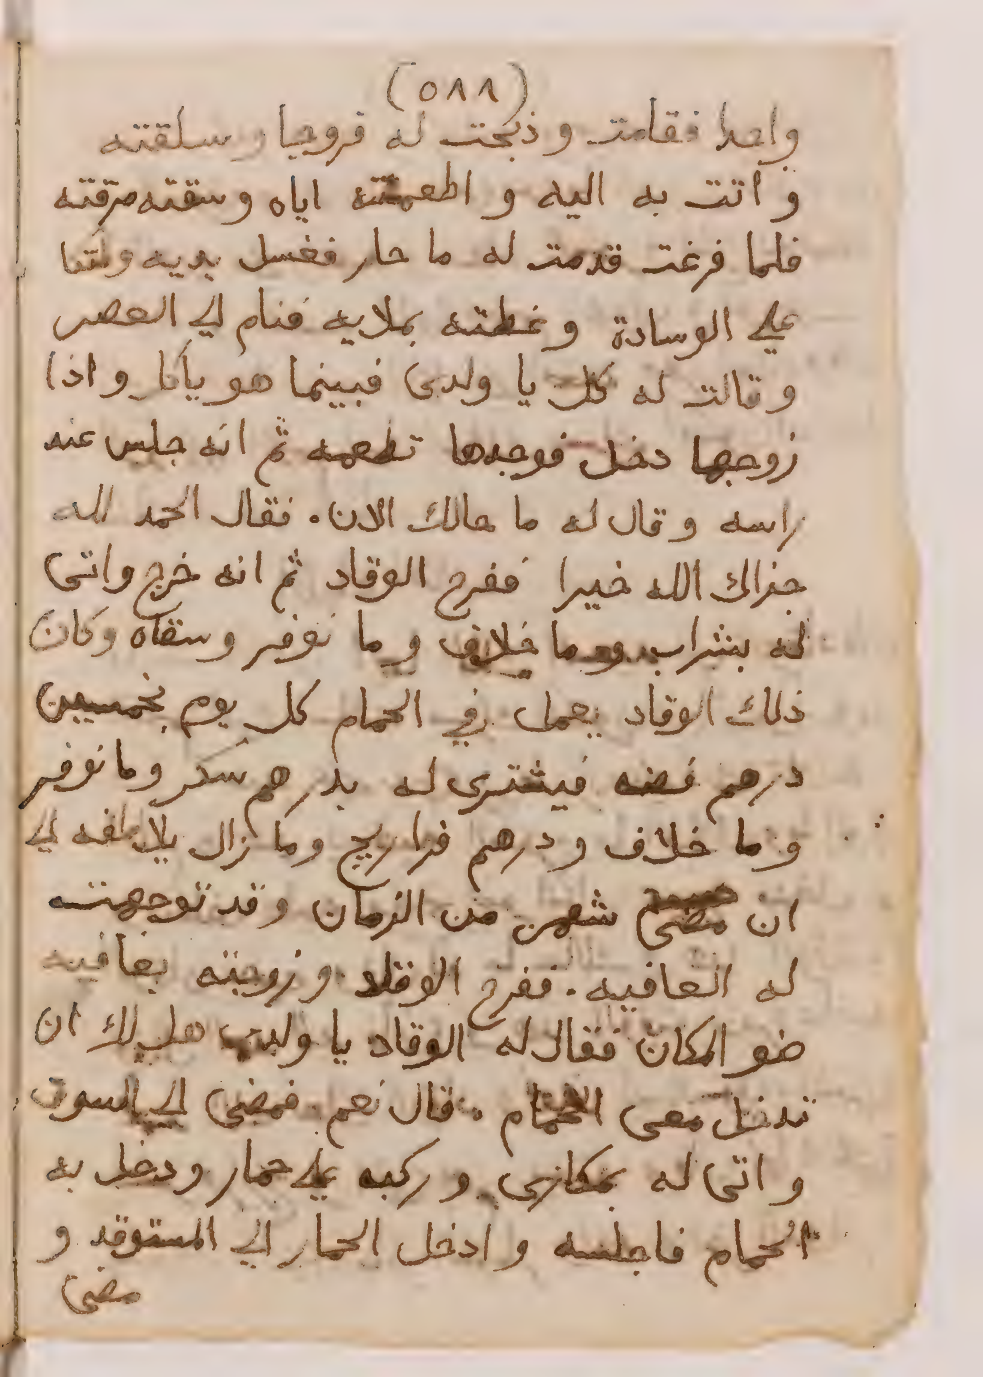 (٥٨٨)
واحدا فقامت وذبحت له فروجا وسلقته
واتت به اليه واطعمته اياه وسقته مرقته
فلما فرغت قدمت له ما حار فغسل يديه واتكا
علي الوسادة وغطته بملايه فنام الي العصر
وقالت له كل يا ولدى فبينما هو ياكل واذا
زوجها دخل فوجدها تطعمه ثم انه جلس عند
راسه وقال له ما حالك الان. فقال الحمد لله
جزاك الله خيرا ففرح الوقاد ثم انه خرج واتى
له بشراب وما خلاف وما نوفر وسقاه وكان
ذلك الوقاد يعمل في الحمام كل يوم بخمسين
درهم فضه فيشترى له بدرهم سكر وما نوفر
وما خلاف ودرهم فراريج وما زال يلاطفه الي
ان مضى شهر من الزمان وقد توجهت
له العافيه. ففرح الوقاد وزوجته بعافيه
ضو المكان فقال له الوقاد يا ولدى هل لك ان
تدخل معى الحمام. قال نعم. فمضى الي السوق
واتى له بمكارى وركبه علي حمار ودخل به
الحمام فاجلسه وادخل الحمار الي المستوقد و
مضى